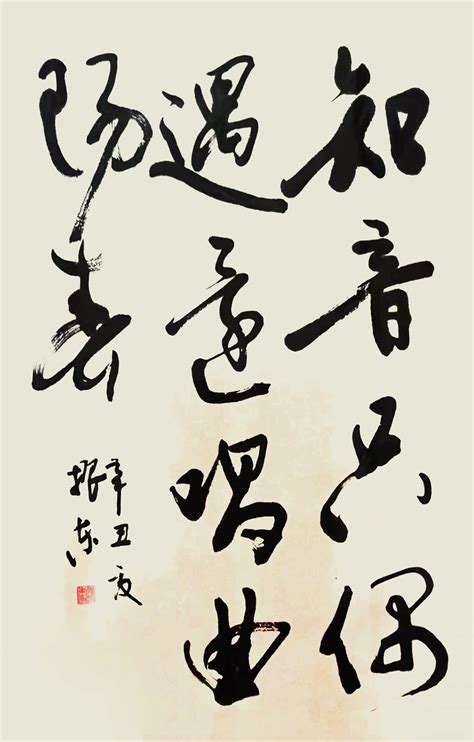 知音只偶
遇還唱曲
陽春
辛丑夏
振东